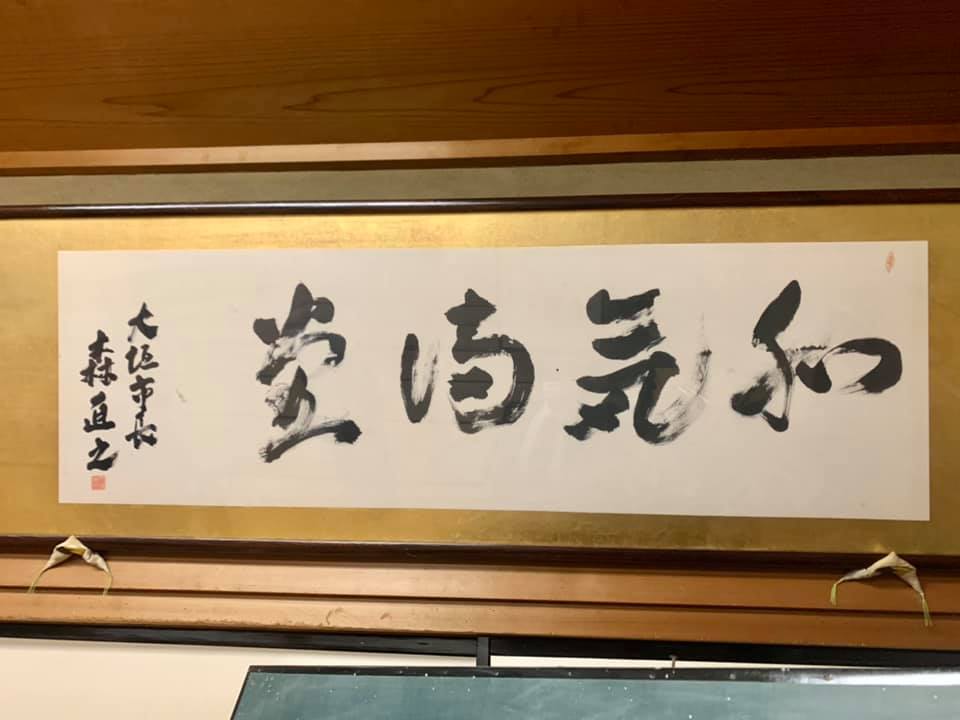 和気満堂
大垣市長
森直之